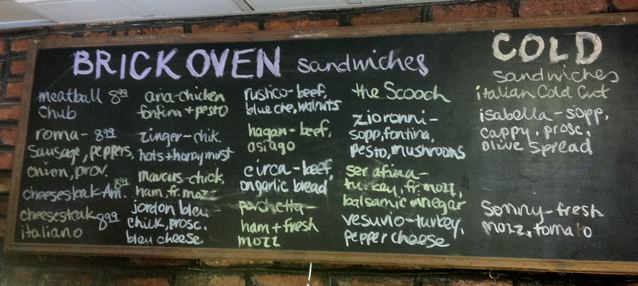 BRICK OVEN sandwiches
meatball 8.99
chub
roma - 8.99
sausage, peppers,
onion, prov.
cheesesteak Am. 8.99
cheesesteak 8.99
italiano
ana - chicken
fontina + pesto
zinger - chik.
hots + honey must
marcus - chick,
ham, fr. mozz
jordon bleu -
chick, prosc.
bleu cheese
rustico - beef,
blue che, walnuts
hagan - beef,
asiago
circa - beef,
on garlic bread
porchetta -
ham + fresh
mozz
the Scooch
zioronni -
sopp, fontina,
pesto, mushrooms
serafina -
turkey, fr. mozz,
balsamic vinegar
vesuvio - turkey,
pepper cheese
COLD
sandwiches
italian Cold Cut
isabella - sopp,
cappy, prosc,
olive spread
Sonny - fresh
mozz, tomato